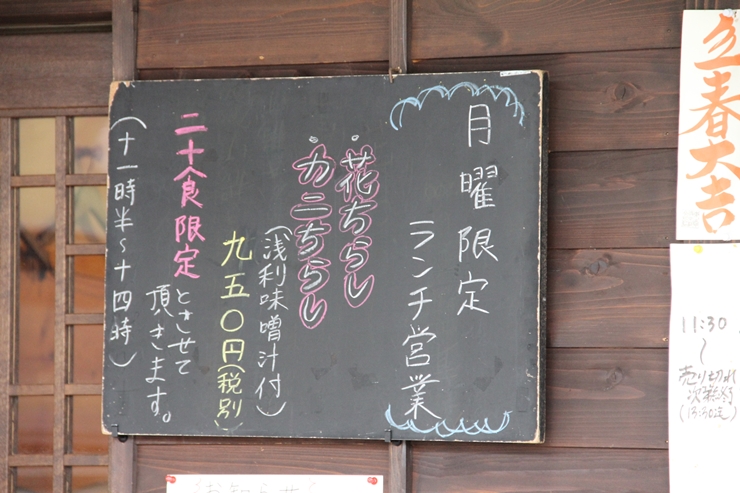 月曜限定
ランチ営業
花ちらし
カニちらし
(浅利味噌汁付)
九五〇円(税別)
二十食限定
とさせて
頂きます。
(十一時半~十四時)
立春大吉
11:30
~
売り切れ
次第終了
(13:30迄)
お知らせ